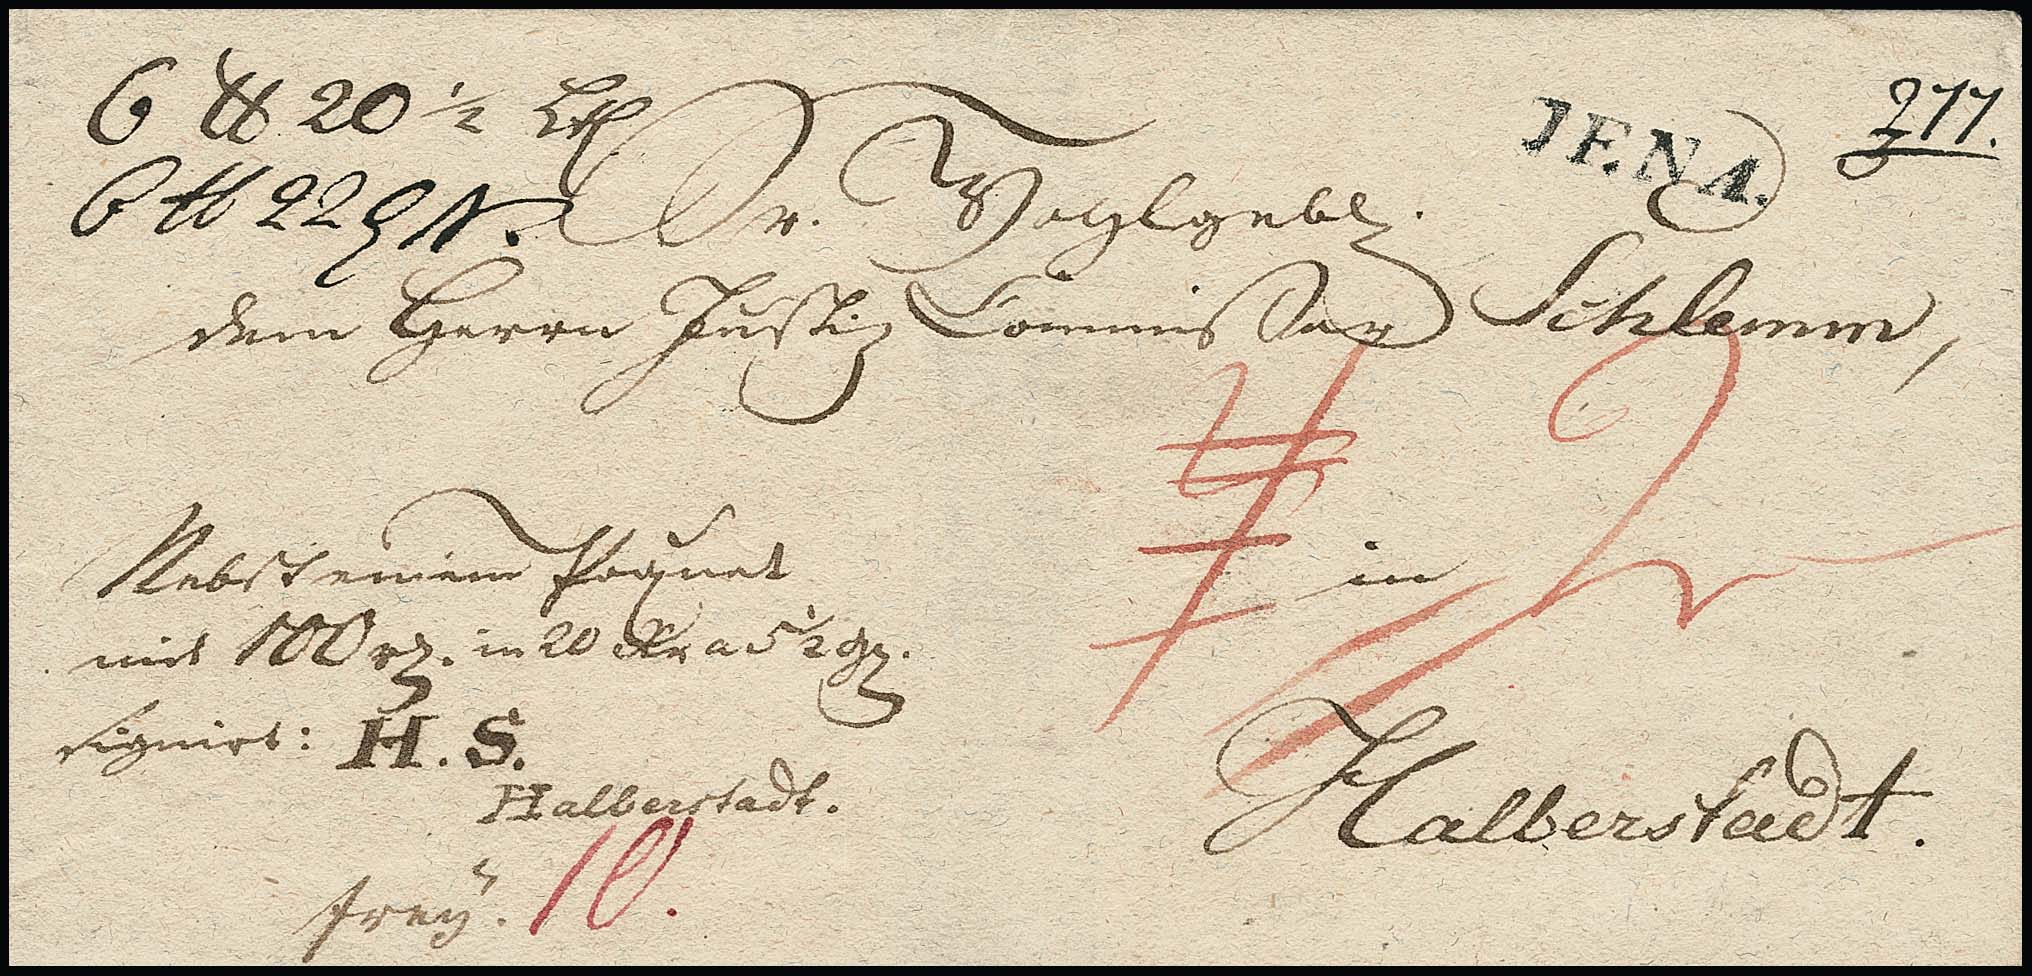 6 ℔ 20 1/2 Lth
JENA.
277.
6 ℔ 22
Sr. Wohlgebl.
dem Herrn Justiz Commissar Schlemm,
in
Halberstadt.
Nebst einem Paquet
mit 100 rℓ. in 20 a 5 1/2
signirt: H. S.
Halberstadt.
frey. 10.